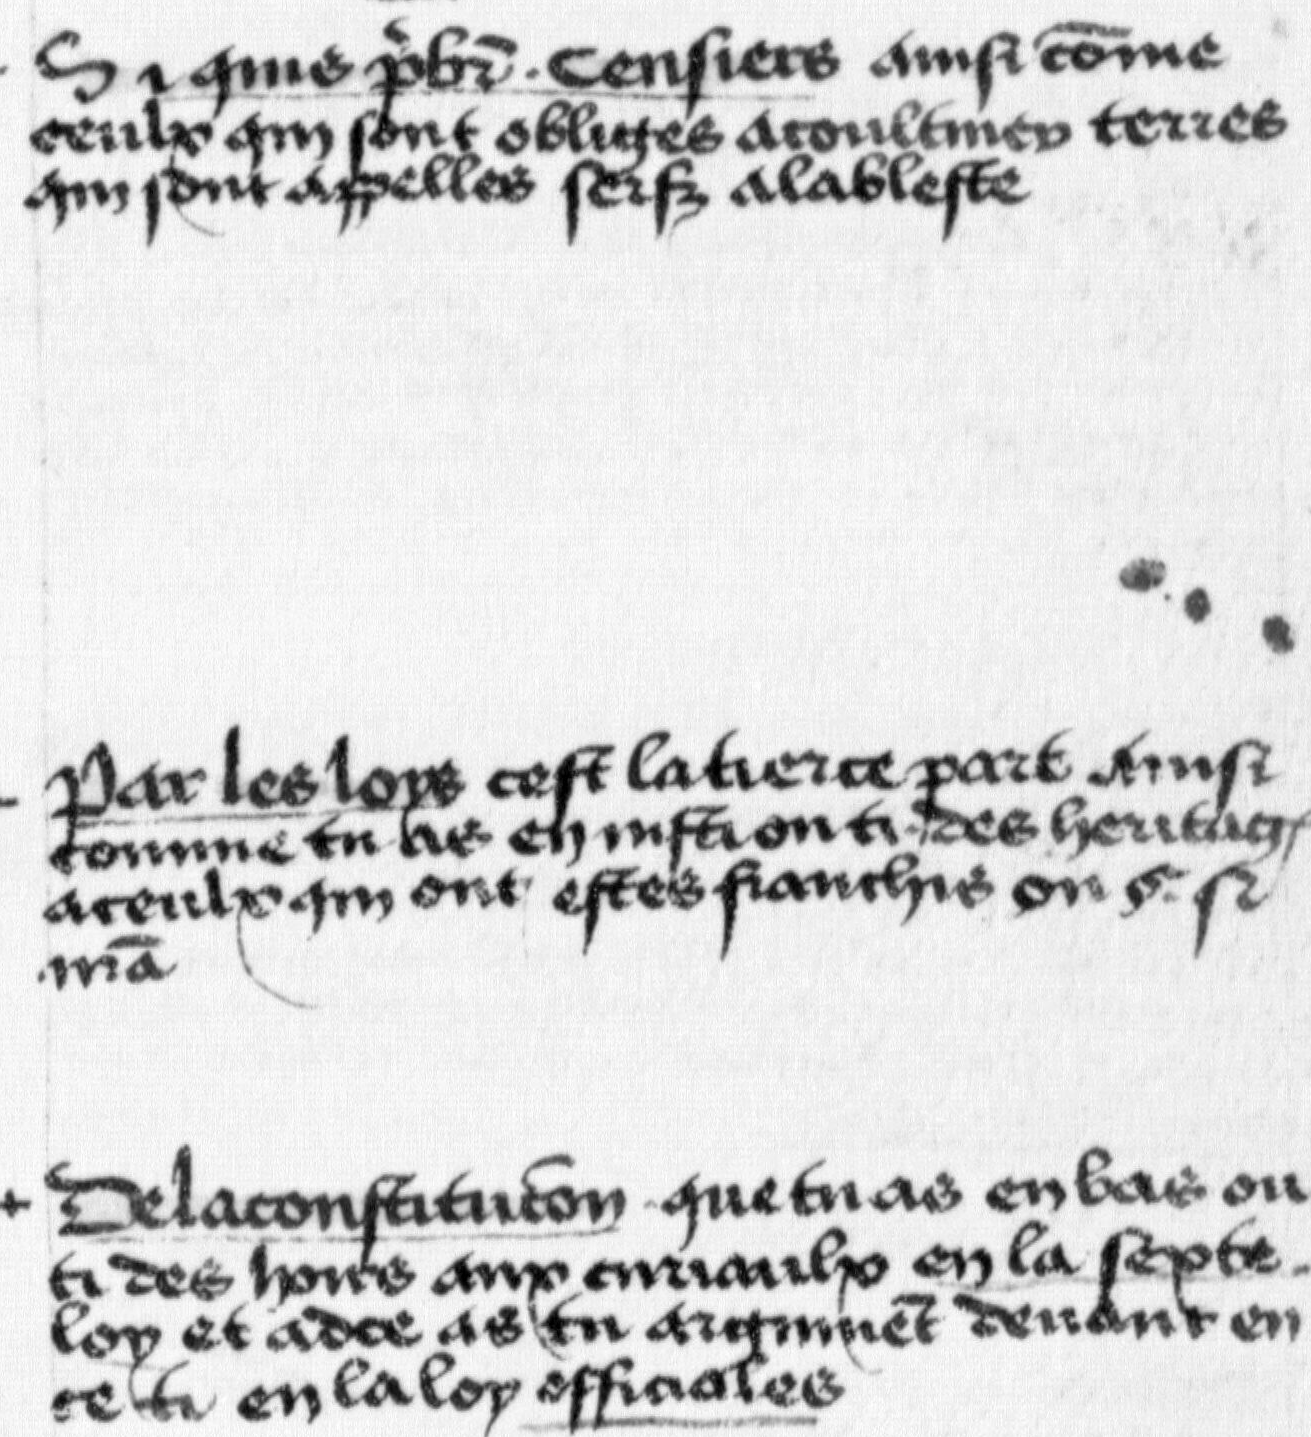 Si quis p̃br̃. Censiers ainsi cõme
ceulx qui sont obliges a coultiuer terres
qui sont appelles serfz a la bleste
Par les loys cest la tierce part Ainsi
comme tu as en instõn ti. des heritag
a ceulx qui ont estes franchis ou §. si
De la constitucõn que tu as en bas ou
ti des hoirs aux curiaulx en la septe
loy et adce as tu argumẽt deuant en
ce ti en la loy efficiales